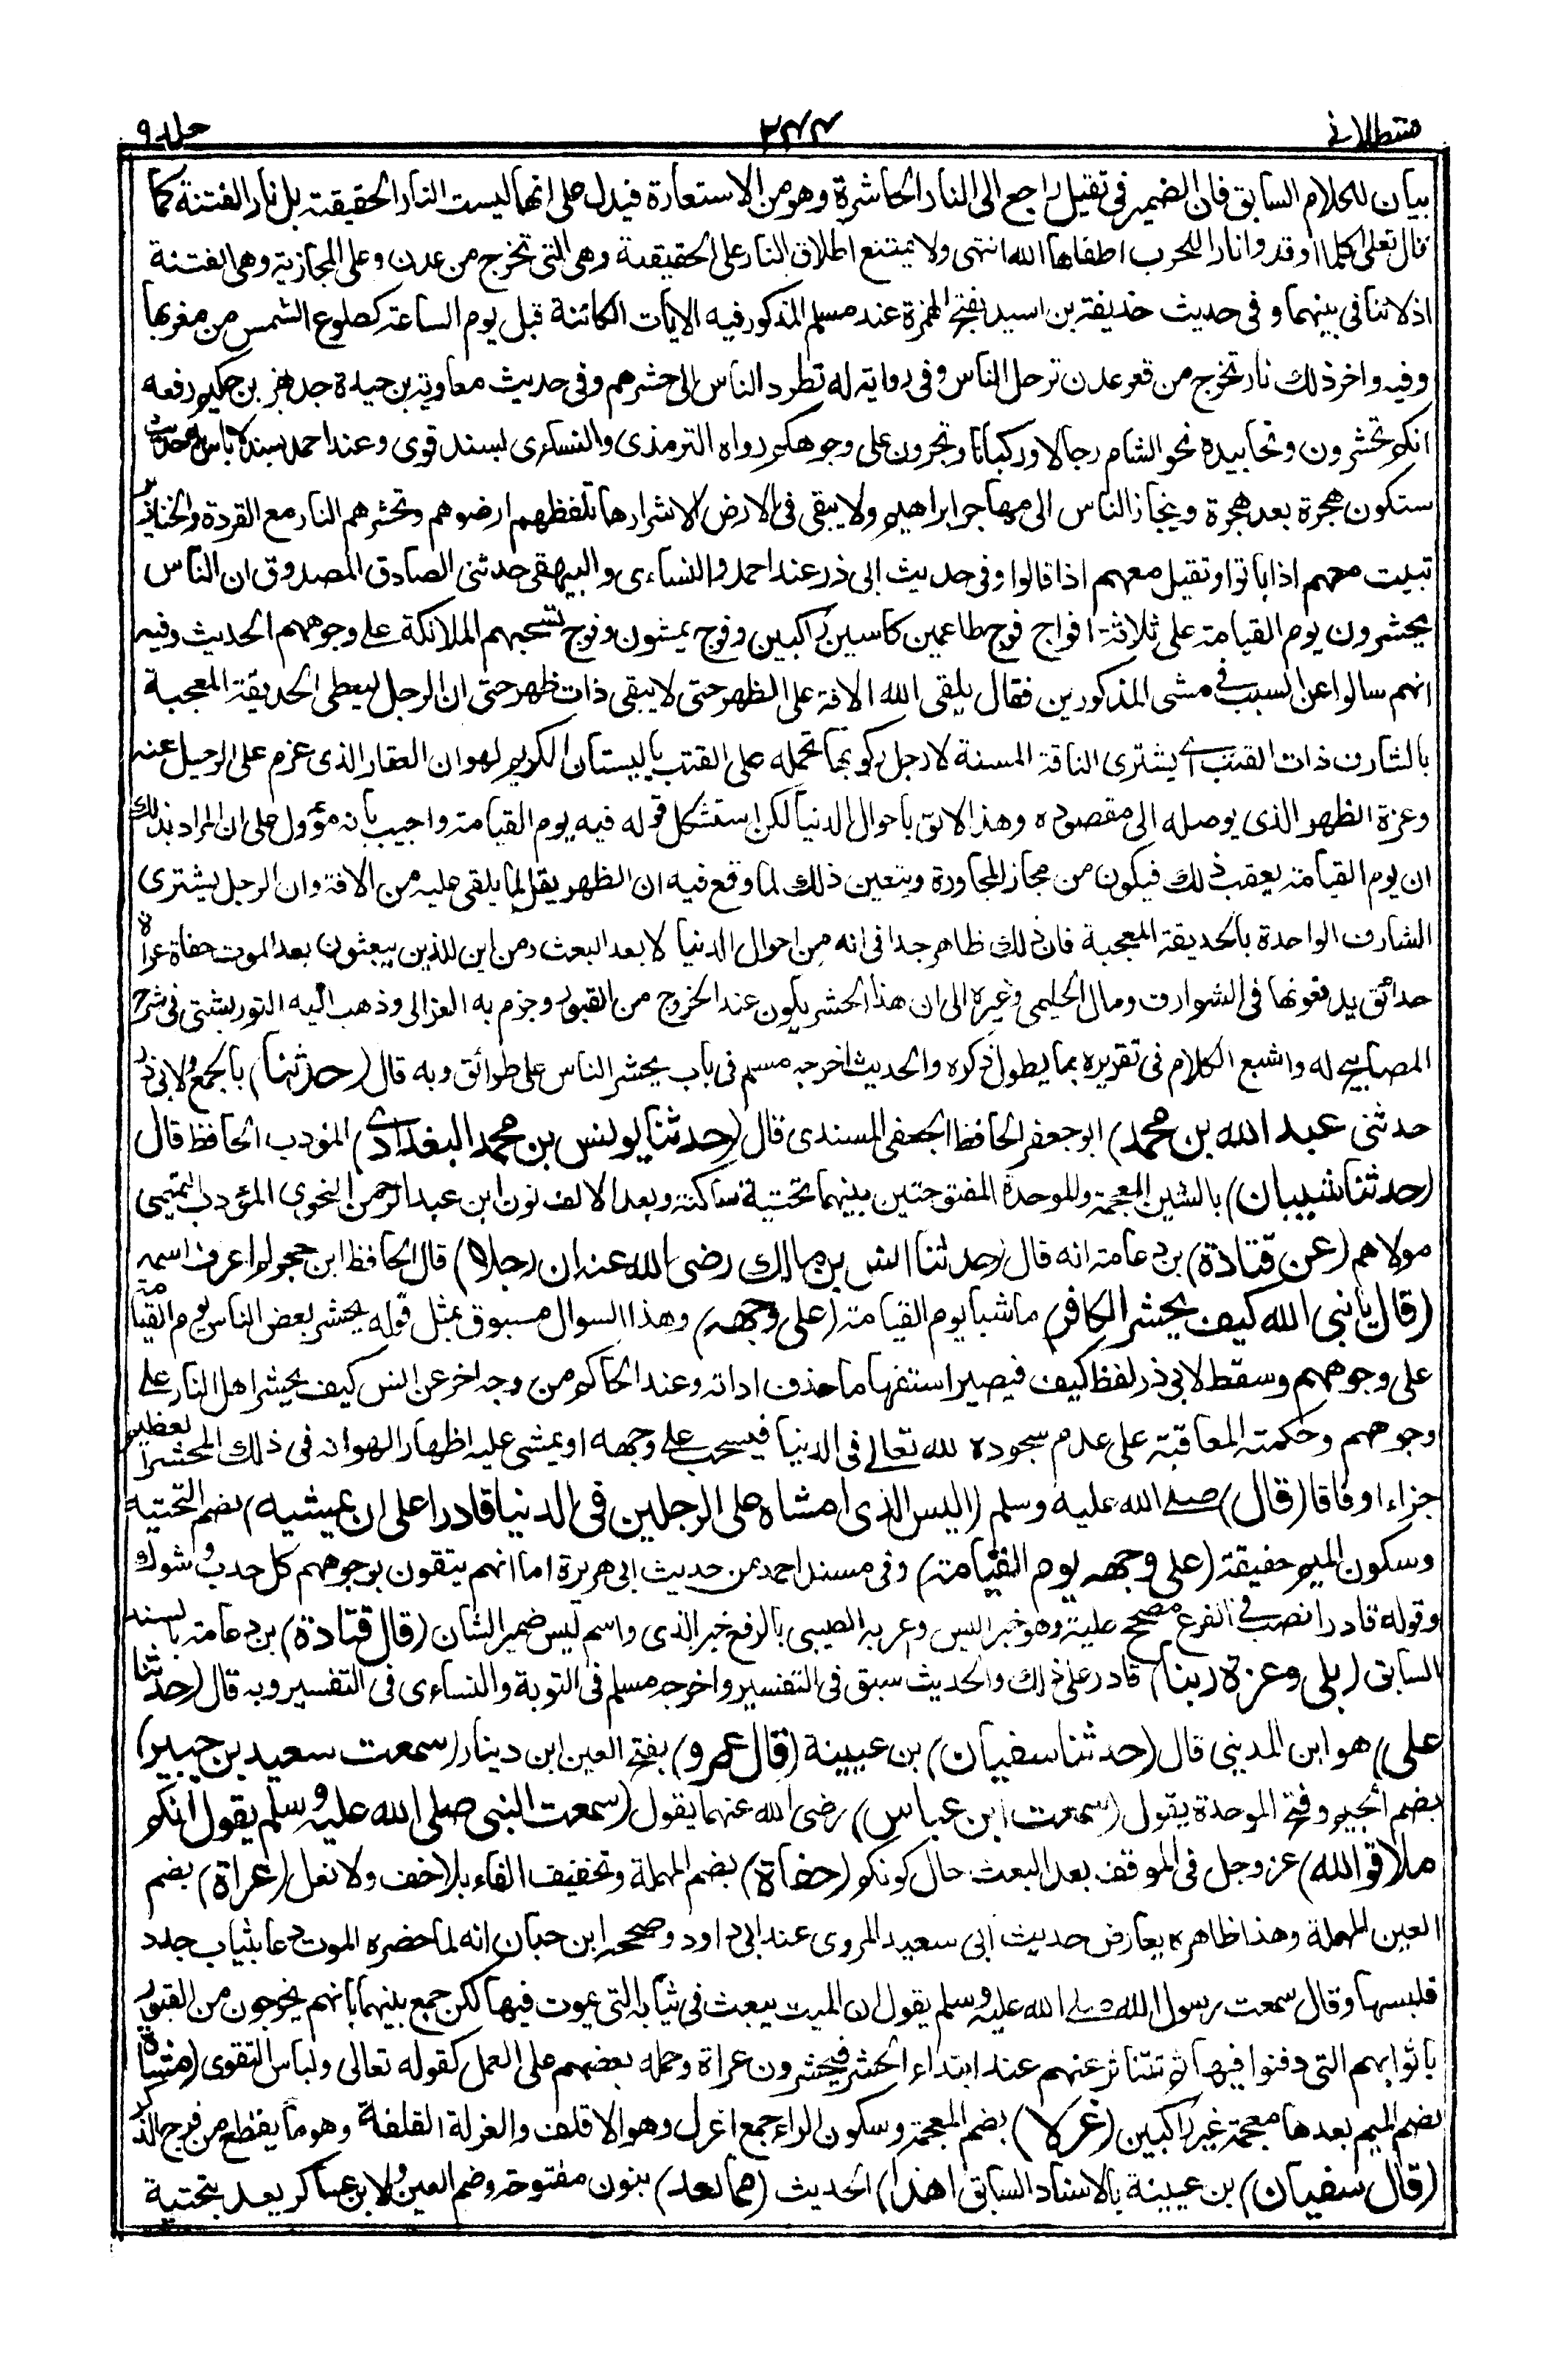 قسطلانی ٢٤٤ جلد ٩
بيان للكلام السابق فان الضمير فى تقيل راجع الى النار الحاشرة وهو من الاستعارة فيدل على انها ليست النار الحقيقة بل نار الفتنة كما
قال تعلى كلما اوقدوا نارا للحرب اطفاها الله انتهى ولا يمتنع اطلاق النار على الحقيقة وهى التى تخرج من عدن وعلى المجازية وهى الفتنة
اذ لا تنافى بينهما وفى حديث حذيفة بن اسيد بفتح الهمزة عند مسلم المذكور فيه الايات الكائنة قبل يوم الساعة كطلوع الشمس من مغربها
وفيه واخر ذلك نار تخرج من قعر عدن ترحل الناس وفى رواية له تطرد الناس الى حشرهم وفى حديث معاوية بن حيدة جد بهز بن حكيم رفعه
انكم تحشرون ونحا بيده نحو الشام رجالا وركبانا وتجرون على وجوهكم رواه الترمذى والنساءى بسند قوى وعند احمد بسند لا باس به حديث
ستكون هجرة بعد هجرة وينحاز الناس الى مهاجر ابراهيم ولا يبقى فى الارض الا شرارها تلفظهم ارضوهم وتحشرهم النار مع القردة والخنازير
تبيت معهم اذا باتوا وتقيل معهم اذا قالوا وفى حديث ابى ذر عند احمد والنساءى والبيهقى حدثنى الصادق المصدوق ان الناس
يحشرون يوم القيامة على ثلاثة افواج فوج طاعمين كاسين راكبين وفوج يمشون وفوج تسحبهم الملائكة على وجوههم الحديث وفيه
انهم سالوا عن السبب فى مشى المذكورين فقال يلقى الله الافة على الظهر حتى لا يبقى ذات ظهر حتى ان الرجل ليعطى الحديقة المعجبة
بالشارف ذات القتب اے يشترى الناقة المسنة لاجل ركوبها تحمله على القتب بالبستان الكريم لهوان العقار الذى عزم على الرحيل عنه
وعزة الظهر الذى يوصله الى مقصوده وهذا لائق باحوال الدنيا لكن استشكل قوله فيه يوم القيامة واجيب بانه مؤول على ان المراد بذلك
ان يوم القيامة يعقب ذلك فيكون من مجاز المجاورة ويتعين ذلك لما وقع فيه ان الظهر يقل لما يلقى عليه من الافة وان الرجل يشترى
الشارف الواحدة بالحديقة المعجبة فان ذلك ظاهر جدا فى انه من احوال الدنيا لا بعد البعث ومن اين للذين يبعثون بعد الموت حفاة عراة
حدائق يدفعونها فى الشوارف ومال الحليمى وغيره الى ان هذا الحشر يكون عند الخروج من القبور وجزم به الغزالى وذهب اليه التوربشتى فى شرح
المصابيح له واشبع الكلام فى تقريره بما يطول ذكره والحديث اخرجه مسلم فى باب يحشر الناس على طرائق وبه قال (حدثنا) بالجمع ولابى ذر
حدثنى عبد الله بن محمد) ابو جعفر الحافظ الجعفى المسندى قال (حدثنا يونس بن محمد البغدادے) المؤدب الحافظ قال
(حدثنا شيبان) بالشين المعجمة والموحدة المفتوحتين بينهما تحتية ساكنة وبعد الالف نون ابن عبد الرحمن النحوى المؤدب التميمى
مولاهم (عن قتادة) بن دعامة انه قال (حدثنا انس بن مالك رضى الله عنه ان رجلا) قال الحافظ ابن حجر لم اعرف اسمه
(قال يا نبى الله كيف يحشر الكافر) ماشيا يوم القيامة (على وجهه) وهذا السوال مسبوق بمثل قوله يحشر بعض الناس يوم القيامة
على وجوههم وسقط لابى ذر لفظ كيف فيصير استفهاما حذف اداته وعند الحاكم من وجه اخر عن انس كيف يحشر اهل النار على
وجوههم وحكمته المعاقبة على عدم سجوده لله تعالے فى الدنيا فيسحب على وجهه او يمشى عليه اظهار الهوانه فى ذلك المحشر العظيم
جزاءا وفاقا (قال) صلے الله عليه وسلم (اليس الذى امشاه على الرجلين فى الدنيا قادرا على ان يمشيه) بضم التحتية
وسكون الميم حقيقة (على وجهه يوم القيامة) وفى مسند احمد من حديث ابى هريرة اما انهم يتقون بوجوههم كل حدب وشوك
وقوله قادرا نصب فى الفرع مصحح عليه وهو خبر اليس واعربه الطيبى بالرفع خبر الذى واسم ليس ضمير الشان (قال قتادة) بن دعامة بالسند
السابق (بلى وعزة ربنا) قادر على ذلك والحديث سبق فى التفسير واخرجه مسلم فى التوبة والنساءى فى التفسير وبه قال (حدثنا
على) هو ابن المدينى قال (حدثنا سفيان) بن عيينة (قال عمرو) بفتح العين ابن دينار (سمعت سعيد بن جبير)
بضم الجيم وفتح الموحدة يقول (سمعت ابن عباس) رضى الله عنهما يقول (سمعت النبى صلى الله عليه وسلم يقول انكم
ملاقوا الله) عز وجل فى الموقف بعد البعث حال كونكم (حفاة) بضم المهملة وتخفيف الفاء بلا خف ولا نعل (عراة) بضم
العين المهملة وهذا ظاهره يعارض حديث ابى سعيد المروى عند ابى داود وصححه ابن حبان انه لما حضره الموت دعا بثياب جدد
فلبسها وقال سمعت رسول الله صلے الله عليه وسلم يقول ان الميت يبعث فى ثيابه التى يموت فيها لكن جمع بينهما بانهم يخرجون من القبور
باثوابهم التى دفنوا فيها ثم تتناثر عنهم عند ابتداء الحشر فيحشرون عراة وحمله بعضهم على العمل كقوله تعالى ولباس التقوى (مشاة)
بضم الميم بعدها معجمة غير راكبين (غرلا) بضم المعجمة وسكون الراء جمع اغرل وهو الاقلف والغرلة القلفة وهو ما يقطع من فرج الذكر
(قال سفيان) بن عيينة بالاسناد السابق (هذا) الحديث (مما نعد) بنون مفتوحة وضم العين ولابن عساكر يعد بتحتية